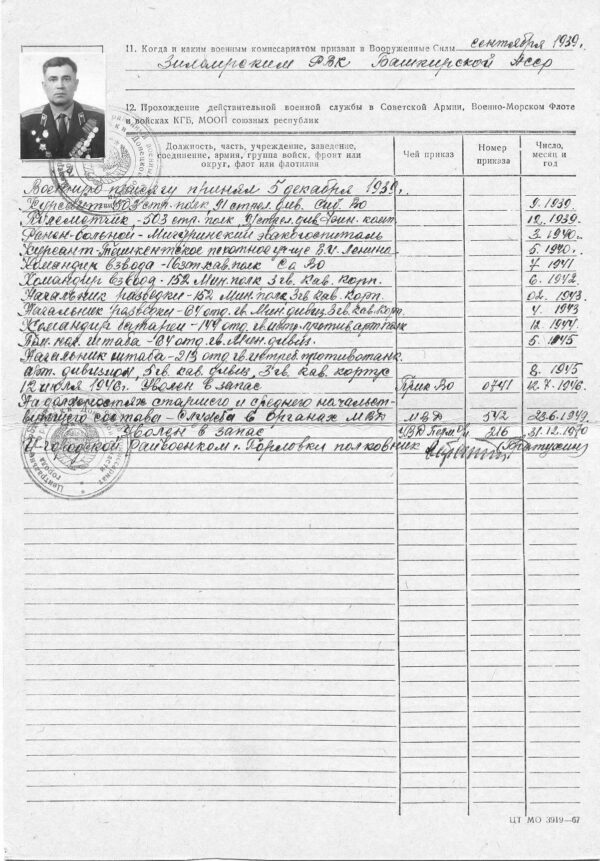 11. Когда и каким военным комиссариатом призван в Вооруженные Силы сентября 1939г.
Зилаирским РВК Башкирской АССР
12. Прохождение действительной военной службы в Советской Армии, Военно-Морском Флоте
и войсках КГБ, МООП союзных республик
Должность, часть, учреждение, заведение, соединение, армия, группа войск, фронт или округ, флот или флотилия
Чей приказ
Номер приказа
Число, месяц и год
Военную присягу принял 5 декабря 1939г.
Курсант - 503 стр. полк 91 стрел. див. Сиб. ВО 9. 1939
Пулеметчик - 503 стр. полк 91 стрел. див. Фин. камп. 12. 1939
Ранен-больной - эвакогоспиталь 3. 1940.
Курсант - Ташкентское пехотное уч-ще В.И. Ленина 5. 1940.
Командир взвода - 16 зап. кав. полк Са ВО 7. 1941
Командир взвода - 152 Мин. полк 3 гв. кав. корп. 6. 1942
Начальник разведки - 152 Мин. полк 3 гв. кав. корп. 02. 1943
Начальник разведки - отд. гв. Мин. дивиз. 3 гв. кав. корп. 4. 1943
Командир батареи - отд. гв. против арт. полк 12. 1944
Пом. нач. штаба - отд. гв. Мин. дивиз. 5. 1945
Начальник штаба - отд. гв. противотанк.
арт. дивизион 5 гв. кав. дивиз. 3 гв. кав. корпус 8. 1945
12 июля 1946г. Уволен в запас Прик ВО 0741 12. 7. 1946.
На должностях старшего и среднего начальст-
вующего состава - Служба в органах МВД МВД 542 23.6.1949
Уволен в запас УВД 216 31.12.1970
Райвоенком г. Горловки полковник
ЦТ МО 3919—67